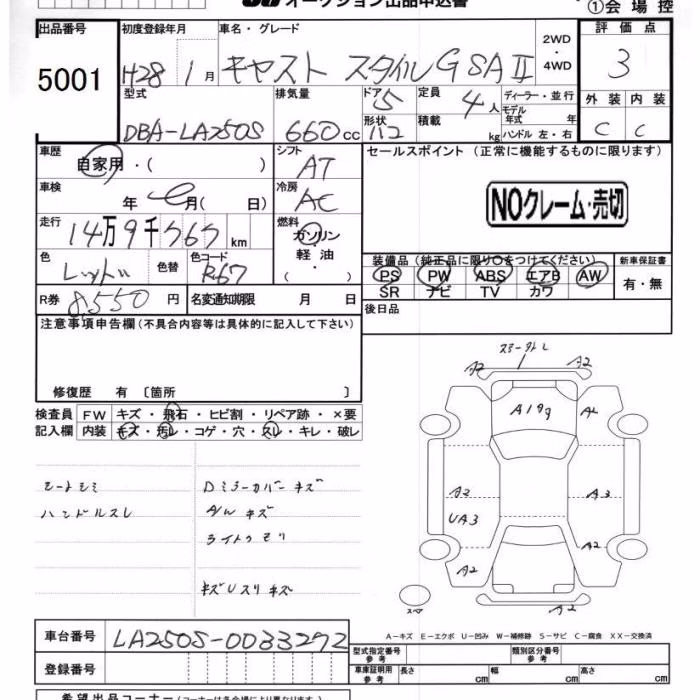 オークション出品申込書
①会場控
出品番号 5001
初度登録年月 H28 1月
車名・グレード キャスト スタイル G SAⅡ
2WD・4WD
評価点 3
外装 C 内装 C
型式 DBA-LA250S
排気量 660cc
ドア 5 形状
定員 4人 積載 kg
ディーラー・並行
モデル年式 年式
ハンドル 左・右
車歴 自家用・( )
シフト AT
セールスポイント (正常に機能するものに限ります)
NOクレーム・売切
車検 年 月( 日)
冷房 AC
走行 14万9千767km
燃料 ガソリン 軽油・( )
色 レッド 色替
色コード R67
装備品(純正品に限り○をつけてください)
PS PW ABS エアB AW
SR ナビ TV カワ
新車保証書 有・無
R券 8550円
名変通知期限 月 日
後日品
注意事項申告欄(不具合内容等は具体的に記入して下さい)
修復歴 有 〔箇所 〕
検査員記入欄
FW キズ・飛石・ヒビ割・リペア跡・×要
内装 キズ・汚レ・コゲ・穴・スレ・キレ・破レ
シートシミ
ハンドルスレ
Dミラーカバーキズ
A/Wキズ
ライトクモリ
キズUスリキズ
A2 A2
A19g A2
A2 A3
UA3
A2 A2
A2
スマ
A-キズ E-エクボ U-凹み W-補修跡 S-サビ C-腐食 XX-交換済
車台番号 LA250S-0033272
登録番号
型式指定番号 参考
類別区分番号 参考
車庫証明用 参考 長さ cm 幅 cm 高さ cm
希望出品コーナー(コーナーは各会場により異なります)